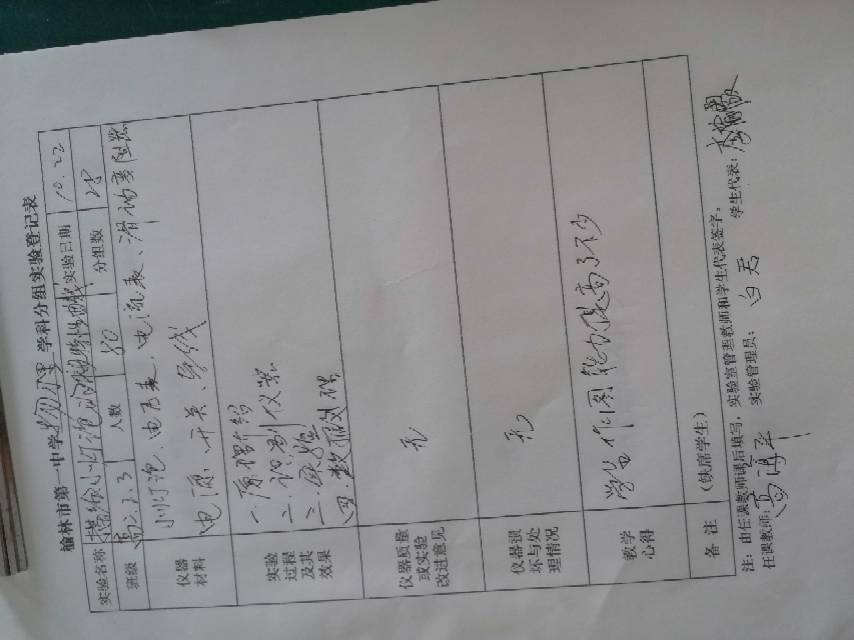 榆林市第一中学 物理 学科分组实验登记表
实验名称 描绘小灯泡的伏安特性曲线 实验日期 10.22
班级 高二.2.3 人数 80 分组数 28
仪器材料 小灯泡、电压表、电流表、滑动变阻器
电源、开关、导线
实验过程及其效果 一.原理介绍
二.识别仪器
三.实验
四.数据处理
仪器质量或实验改进意见 无
仪器损坏与处理情况 无
教学心得 学生作图能力提高了不少
备注 (缺席学生)
注：由任课教师课后填写，实验室管理教师和学生代表签字。
任课教师: 实验管理员: 白 学生代表: